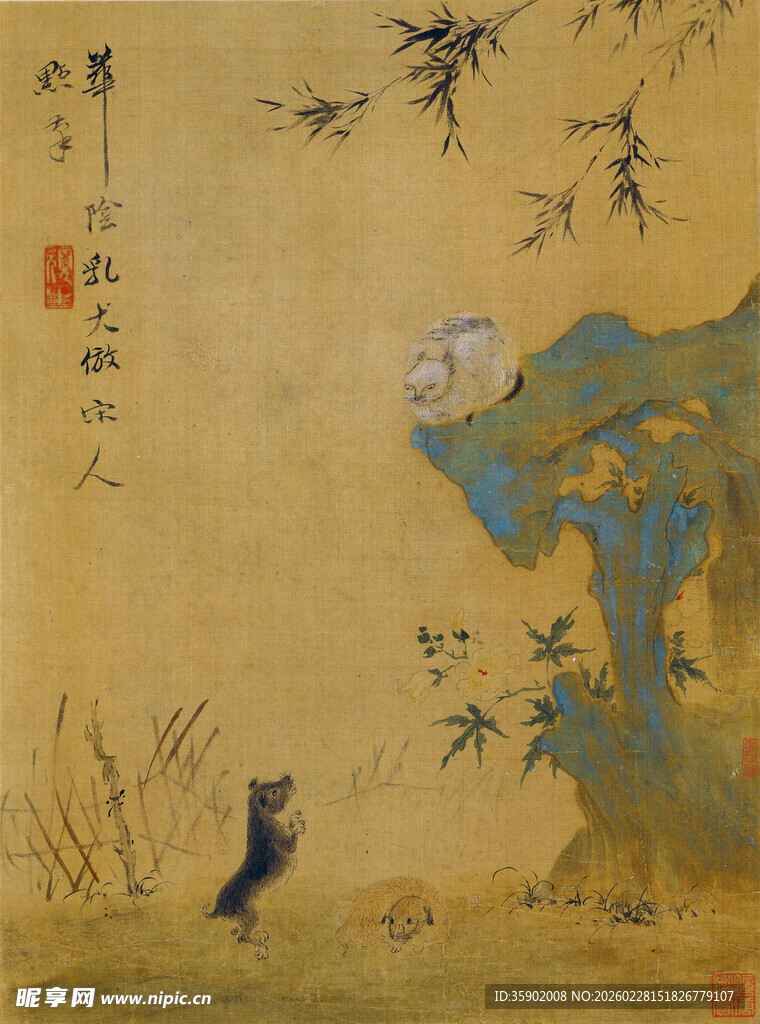 華陰乳犬倣宋人
點筆
昵享网 www.nipic.cn
ID:35902008 NO:20260228151826779107